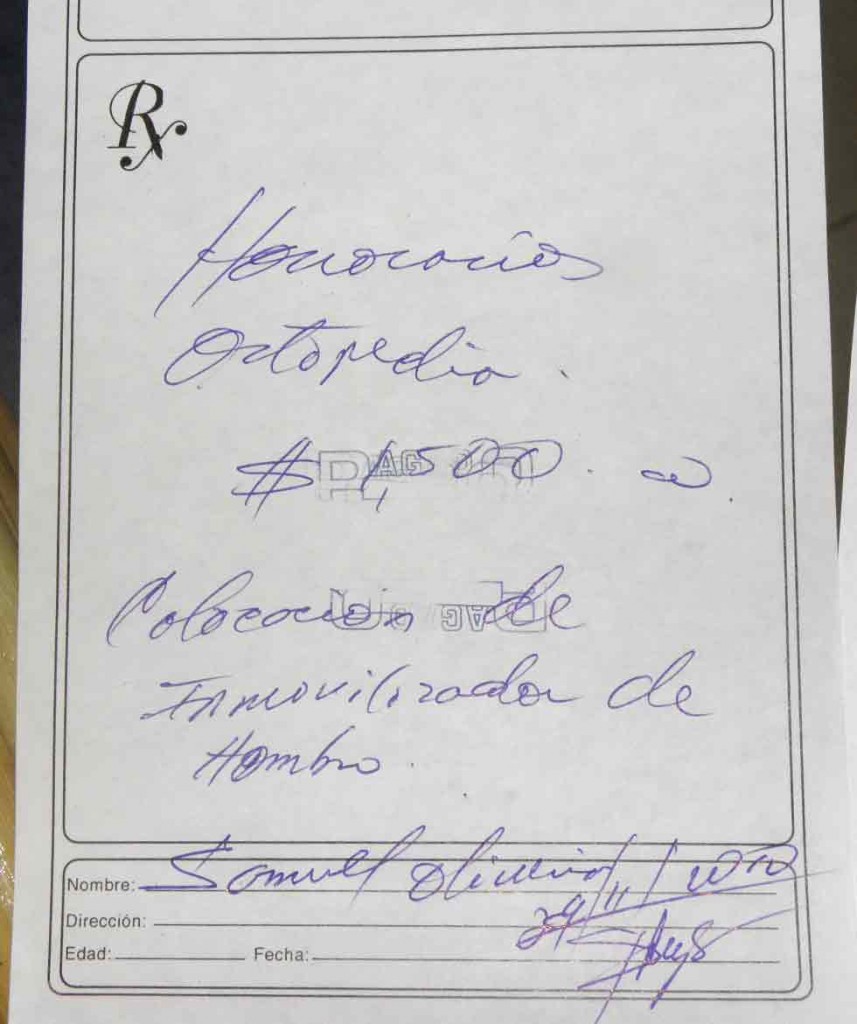 Rx
Honorarios
Ortopedia.
$ 1,500.00.
Colocacion de
Inmovilizador de
Hombro.
Nombre: Samuel
Dirección:
29/11/
Edad: Fecha: